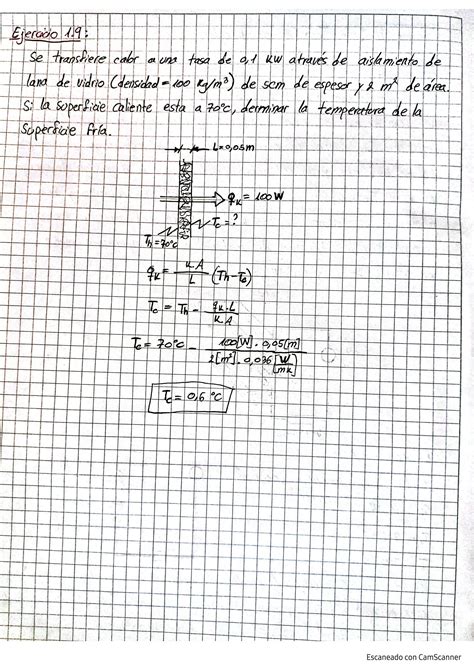 Ejercicio 1.9:
Se transfiere calor a una tasa de 0,1 KW através de aislamiento de
lana de vidrio (densidad = 100 Kg/m³) de 5cm de espesor y 2 m² de área.
Si la superficie caliente esta a 70°C, derminar la temperatura de la
Superficie fría.
L=0,05m
qk = 100W
Tc = ?
Th = 70°C
qk = KA/L (Th-Tc)
Tc = Th - qk.L/KA
Tc = 70°C - 100[W] . 0,05[m] / 2[m²] . 0,036 [W/mk]
Tc = 0,6 °C
Escaneado con CamScanner